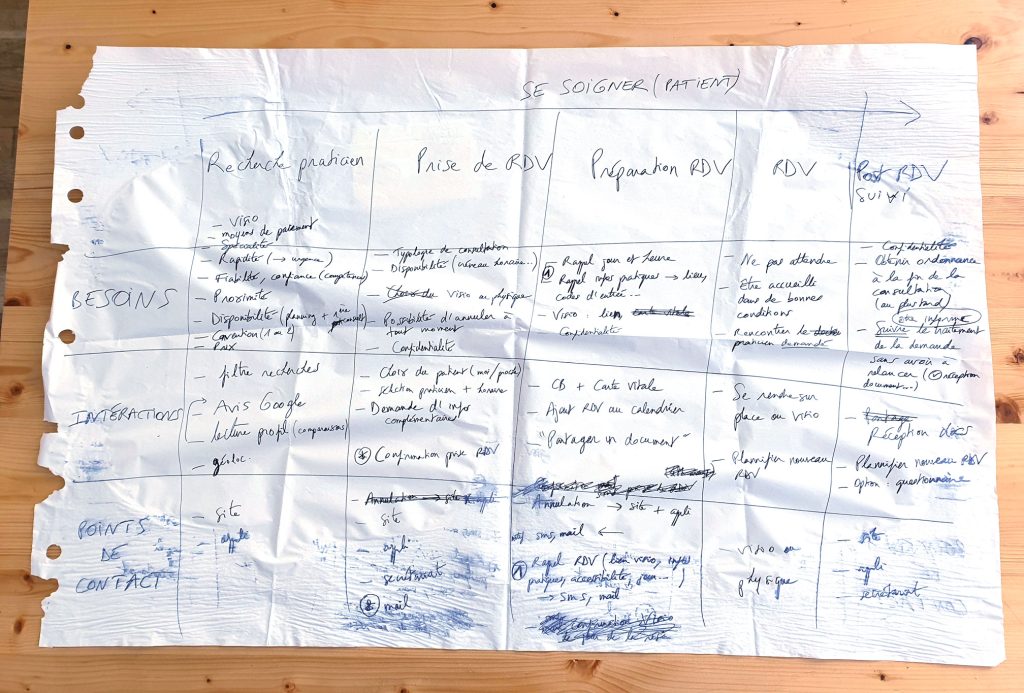 SE SOIGNER (PATIENT)
Recherche praticien
Prise de RDV
Préparation RDV
RDV
Post RDV
SUIVI
BESOINS
- Visio
- moyens de paiement
- Spécialité
- Rapidité (→ urgence)
- Fiabilité, confiance (compétence)
- Proximité
Disponibilité (planning +
- Convention (1 ou 2)
- Prix
- Typologie de consultation
- Disponibilité (créneau horaire...)
- Choix du Visio ou physique
- Possibilité d'annuler à
tout moment
Confidentialité
- Rappel jour et heure
Rappel infos pratiques → lieu,
codes d'entrée...
- Visio : lien carte vitale
Confidentialité
- Ne pas attendre
- Etre accueilli
dans de bonnes
conditions
- Rencontrer le docteur
praticien demandé
- Confidentialité
- Obtenir ordonnance
à la fin de la
consultation
(au plus tard)
(être informé)
- Suivre le traitement
de la demande
sans avoir à
relancer (réception
document...)
INTÉRACTIONS
- filtre recherches
- Avis Google
- lecture profil (comparaisons)
- géoloc.
- Choix du patient (moi/proche)
- sélection praticien + horaire
- Demande d'infos
complémentaires
* Confirmation prise RDV
- CB + Carte vitale
- Ajout RDV au calendrier
- "Partager un document"
- Se rendre sur
place ou visio
- Plannifier nouveau
RDV
- Partage
Réception docs
- Plannifier nouveau RDV
- Option : questionnaire
POINTS
DE
CONTACT
- site
- appli
- Annulation → site + appli
- site
- appli
- secrétariat
* mail
Annulation → site + appli
sms, mail ←
Rappel RDV (lien visio, infos
pratiques, accessibilité, jour...)
→ sms, mail
- Confirmation Visio
le jour de la
- visio ou
physique
- site
- appli
- secrétariat